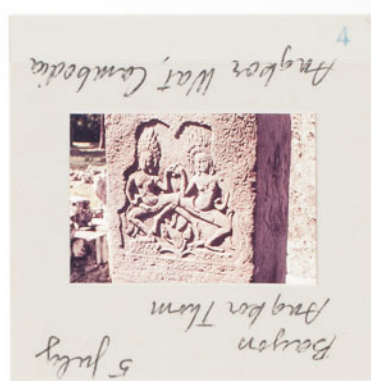 4
Angkor Wat, Cambodia
Bayon
Angkor Thom
5 July